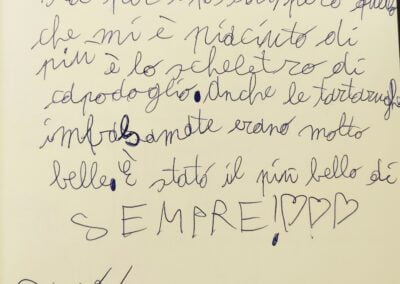 che mi è piaciuto di
più è lo scheletro di
capodoglio. Anche le tartarughe
imbalsamate erano molto
belle. È stato il più bello di
SEMPRE!♡♡♡